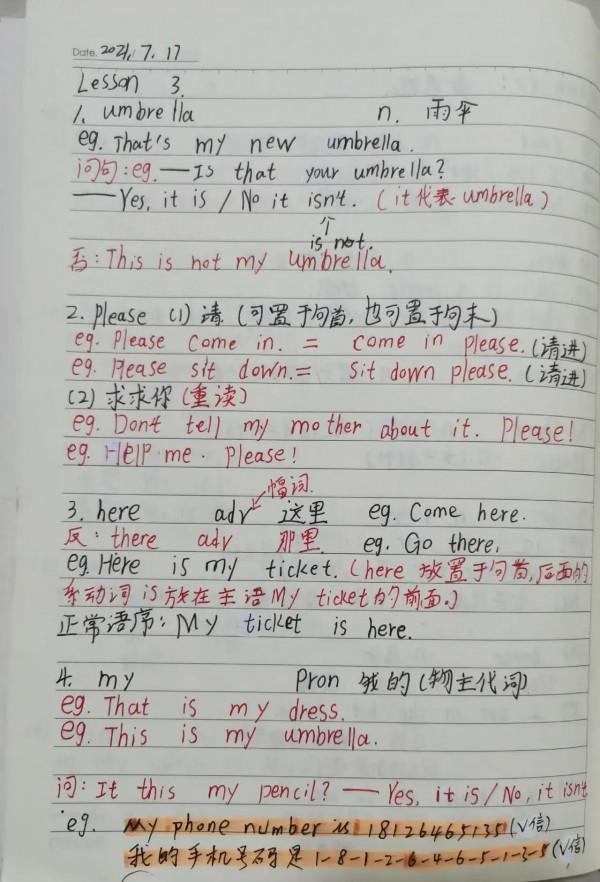 Date. 2021. 7. 17
Lesson 3.
1. umbrella n. 雨伞
eg. That's my new umbrella.
问句: eg. — Is that your umbrella?
— Yes, it is / No it isn't. (it代表 umbrella)
个
is not.
否: This is not my umbrella.
2. please (1) 请 (可置于句首, 也可置于句末)
eg. Please come in. = come in please. (请进)
eg. Please sit down. = sit down please. (请进)
(2) 求求你 (重读)
eg. Don't tell my mother about it. Please!
eg. Help me. Please!
幅词.
3. here adv 这里 eg. Come here.
反: there adv 那里. eg. Go there.
eg. Here is my ticket. (here 放置于句首, 后面的
系动词 is 放在主语 My ticket 的前面。)
正常语序: My ticket is here.
4. my Pron 我的 (物主代词)
eg. That is my dress.
eg. This is my umbrella.
问: It this my pencil? — Yes, it is / No, it isn't
eg. My phone number is 18126465135 (V信)
我的手机号码是 1-8-1-2-6-4-6-5-1-3-5 (V信)